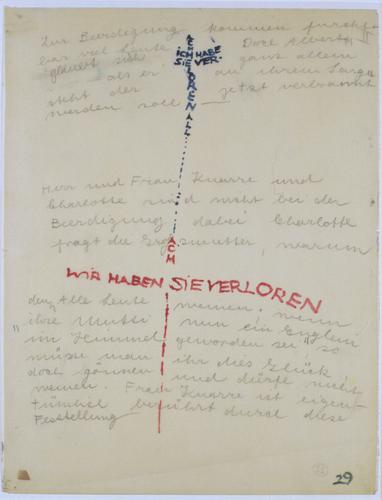 Zur Beerdigung kommen furcht-
bar viel Leute. Doch Albert
glaubt sich ganz allein
als er an ihrem Sarge
steht der jetzt verbrannt
werden soll —
ACH ICH HABE
SIE VER-
LOREN ALL
Herr und Frau Knarre und
Charlotte sind nicht bei der
Beerdigung dabei Charlotte
fragt die Großmutter, warum
ACH
WIR HABEN SIE VERLOREN
denn Alle Leute weinen, wenn
ihre Mutti nun ein Englein
"im Himmel geworden sei" so
müsse man ihr dies Glück
doch gönnen und dürfe nicht
weinen. Frau Knarre ist eigen-
tümlich berührt durch diese
Feststellung
29